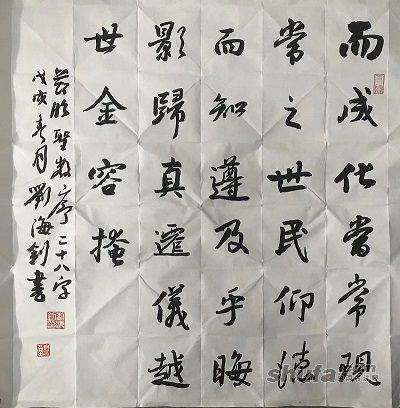 而成化當常現
常之世民仰德
而知遵及乎晦
影歸真遷儀越
世金容掩
臨聖教序二十八字
戊戌月劉海書
shufa